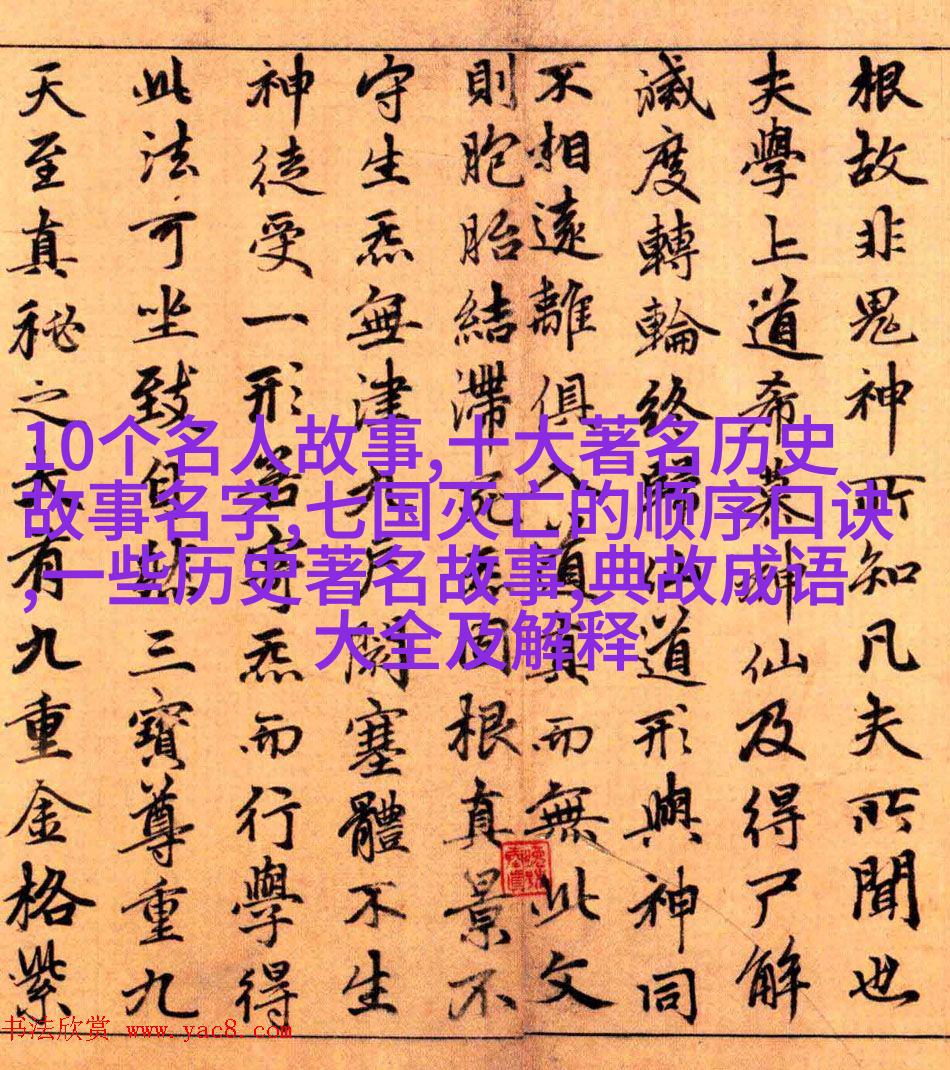 根故非鬼神所知凡夫所聞也
夫學上道希慕神仙及得尸解
滅度轉輪終歸仙道形與神同
不相遠離俱入道真而無此文
則胞胎結滯死炁固根真景不
守生炁無津九戶閉塞體不生
神徒受一形若寄炁而行學得
此法可坐致自然三寶尊重九
天至真秘之大有九重金格紫
10个名人故事,十大著名历史
故事名字,七国灭亡的顺序口诀
,一些历史著名故事,典故成语
大全及解释
书法欣赏 www.yac8.com